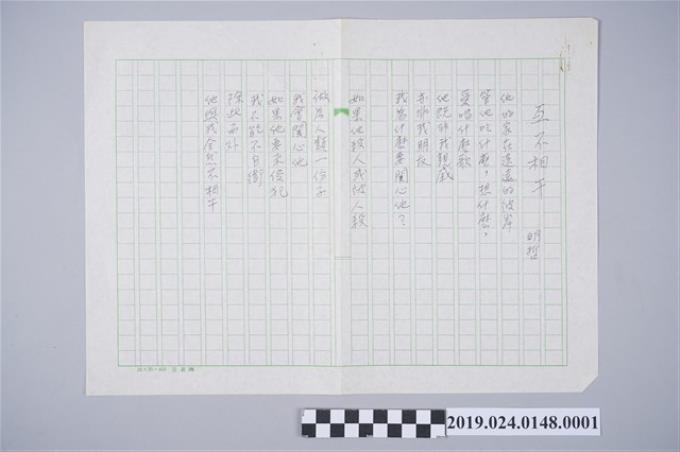 互不相干
明哲
他的家在遙遠的彼岸
管他吃什麼,想什麼,
愛唱什麼歌
他既非我親戚
亦非我朋友
我為什麼要關心他?
如果他殺人或被人殺
做為人類一份子
我會關心他
如果他要來侵犯
我不能不自衛
除此而外
他與我全然不相干
2019.024.0148.0001